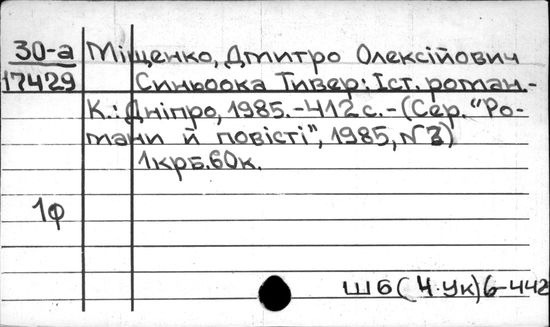 30-а Міщенко, Дмитро Олексійович
17429 Синьоока Тивер: Іст. роман.-
К.: Дніпро, 1985.-412 с.-(Сер. "Ро-
мани й повісті", 1985, № 3)
1крб.60к.
1ф
Ш6(4.Ук)6-442